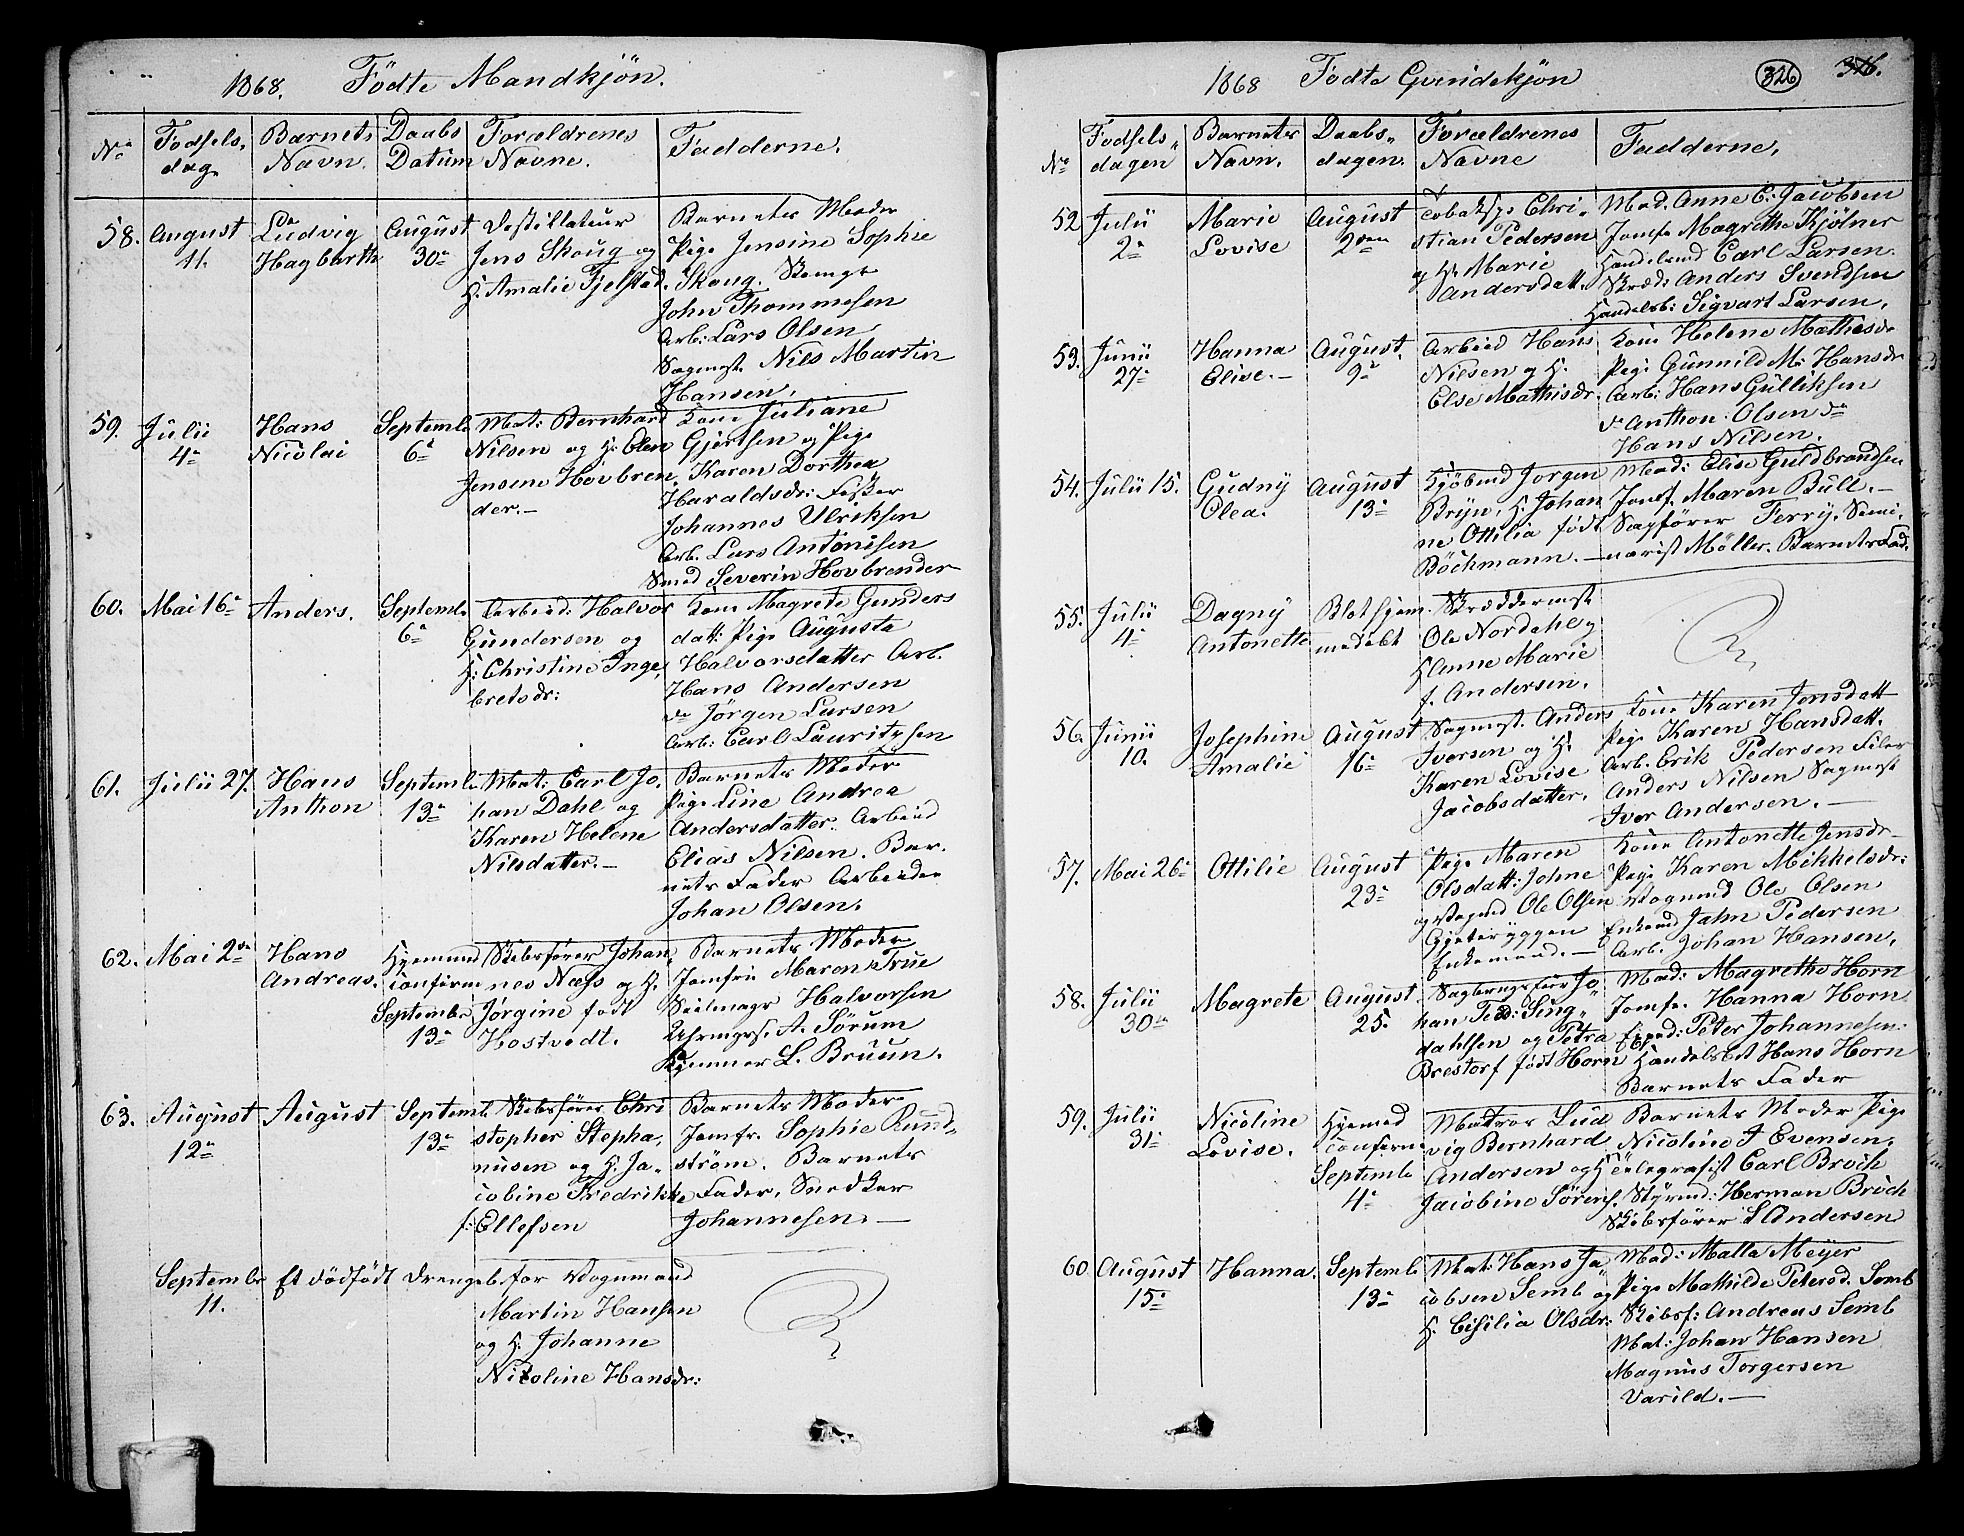 1868. Födte Mandkjön.
No Fodsels, dag. Barnets Navn. Daabs Datum Forældrenes Navne. Fadderne.
58. August 11. Ludvig Hagbarth August 30te Destillateur
Jens Skoug og
H: Amalie Fjelstad.
Barnets Moder
Pige Jensine Sophie
Skoug.
John Thommesen
Arb: Lars Olsen
Sagmest. Nils Martin
Hansen.
59. Julii 4de Hans Nicolai Septemb. 6te Mat: Bernhard
Nilsen og H: Elen
Jensine Hovbren,
der.—
Kone Juliane
Gjertsen og Pige
Karen Dorthea
Haraldsdr: Fisker
Johannes Ulriksen
Arb. Lars Antonisen
Smed Severin Hovbrender
60. Mai 16de Anders. Septemb. 6te Arbeid: Halvor
Gundersen og
H: Christine Inge,
bretsdr:
Kone Magrete Gunders
datt: Pige Augusta
Halvorsdatter Arb.
Hans Andersen
do Jörgen Larsen
Arb: Carl Lauritzsen
61. Julii 27. Hans Anthon Septemb. 13de Mat: Carl Jo,
han Dahl og
Karen Helene
Nilsdatter.—
Barnets Moder
Pige Line Andrea
Andersdatter. Arbeid
Elias Nilsen. Bar,
nets Fader Arbeider
Johan Olsen.
62. Mai 2den Hans Andreas. Hjemmed confirm Septembr 13de Skibsförer Johan,
nes Næss og H.
Jørgine födt
Hostvedt.
Barnets Moder
Jomfru Maren True
Seilmagr Halvorsen
Uhrmagr. A. Sørum
L. Bruun.
63. August 12te August Septemb 13de Skibsförer Chri
stopher Stepha,
nusen og H. Ja,
cobine Fredrikke
f: Ellefsen
Barnets Moder
Jomfr. Sophie Rund,
ström. Barnets
Fader, Snedker
Johannesen.—
Septembr 11. Et dödfödt Drengeb. for Vognmand
Martin Hansen
og H. Johanne
Nicoline Hansdr:
1868 Födte Qvindekjön 326 316.
No Fodsels, dagen Barnets Navn. Daabs, dagen. Forældrenes Navne Fadderne.
52 Julii 2de Marie Lovise August 2den Tobaksp. Chri,
stian Pedersen
og H. Marie
Andersdatt.
Mad. Anne C. Jacobsen
Jomfr Magrethe Kjölner
Handelsmd Carl Larsen.
Skræd: Anders Svendsen
Handelsb: Sigvart Larsen.
53. Junii 27de Hanna Elise.— August. 9de Arbeid Hans
Nilsen og H.
Else Mathisdr.
Kone Helene Mathisdr
Pige Gunnild M. Hansdr
Arb: Hans Gulliksen
do Anthon Olsen do
Hans Nilsen.
54. Julii 15. Gudny Olea. August 13de Kjöbmd Jorgen
Bryn, H. Johan
ne Ottilia födt
Böchmann.—
Mad: Elise Guldbrandsen
Jomf. Maren Bull.—
Sagförer Ferry. Semi,
narist Möller. Barnets Fad.
55. Julii 4de Dagny Antonette Blot hjem medöbt Skræddermest
Ole Nordahl og
H Anne Marie
f. Andersen.
56. Junii 10. Josephine Amalie August 16de Sagmest. Anders
Iversen og H.
Karen Lovise
Jacobsdatter.
Kone Karen Jensdatt
Pige Karen Hansdatt.
Arb. Erik Pedersen Filer
Anders Nilsen Sagmest
Iver Andersen.—
57. Mai 26de Ottilie August 23de Pige Maren
Olsdatt: Johne
og Vognmd Ole Olsen
Gjeteryggen
Enkemand.—
Kone Antonette Jensdr
Pige Karen Mikkelsdr:
Vognmd Ole Olsen
Enkemd Jahn Pedersen
Arb. Johan Hansen.
58. Julii 30te Magrete August. 25. Sagbrugsfuir Jo,
han Ted: Sing,
dahlsen og Petra
Brestorf födt Horn
Mad: Magrethe Horn
Jomfr. Hanna Horn
Exped: Peter Johannesen:
Handelsbet Hans Horn
Barnets Fader
59. Julii 31te Nicoline Lovise. Hjemmed confirm Septemb 4de Matros Lud
vig Bernhard
Andersen og H
Jacobine Sørens.
Barnets Moder Pige
Nicoline J Evensen.
Telegrafist Carl Broch
Styrmd: Herman Broch
Skibsförer S Andersen
60 August 15de Hanna. Septemb 13de Mat: Hans Ja,
cobsen Semb og
H. Cisilia Olsdr:
Mad: Malla Meyer
Pige Mathilde Petersd. Semb
Skibsf: Andreas Semb
Mat: Johan Hansen
Magnus Torgersen
Varild.—